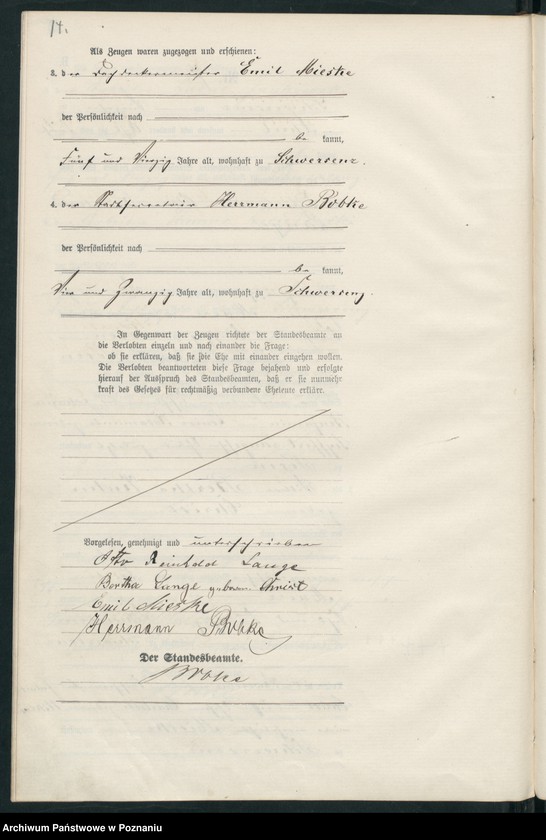 14.
Als Zeugen waren zugezogen und erschienen:
3. der Dachdeckermeister Emil Mieske
der Persönlichkeit nach
be kannt,
Fünf und Vierzig Jahre alt, wohnhaft zu Schwersenz.
4. der Stadtsecretair Herrmann Bobke
der Persönlichkeit nach
be kannt,
Vier und Zwanzig Jahre alt, wohnhaft zu Schwersenz.
In Gegenwart der Zeugen richtete der Standesbeamte an
die Verlobten einzeln und nach einander die Frage:
ob sie erklären, daß sie die Ehe mit einander eingehen wollen.
Die Verlobten beantworteten diese Frage bejahend und erfolgte
hierauf der Ausspruch des Standesbeamten, daß er sie nunmehr
kraft des Gesetzes für rechtmäßig verbundene Eheleute erkläre.
Vorgelesen, genehmigt und unterschrieben
Otto Reinhold Lange
Bertha Lange geboren Christ
Emil Mieske
Herrmann Bobke
Der Standesbeamte.
Archiwum Państwowe w Poznaniu